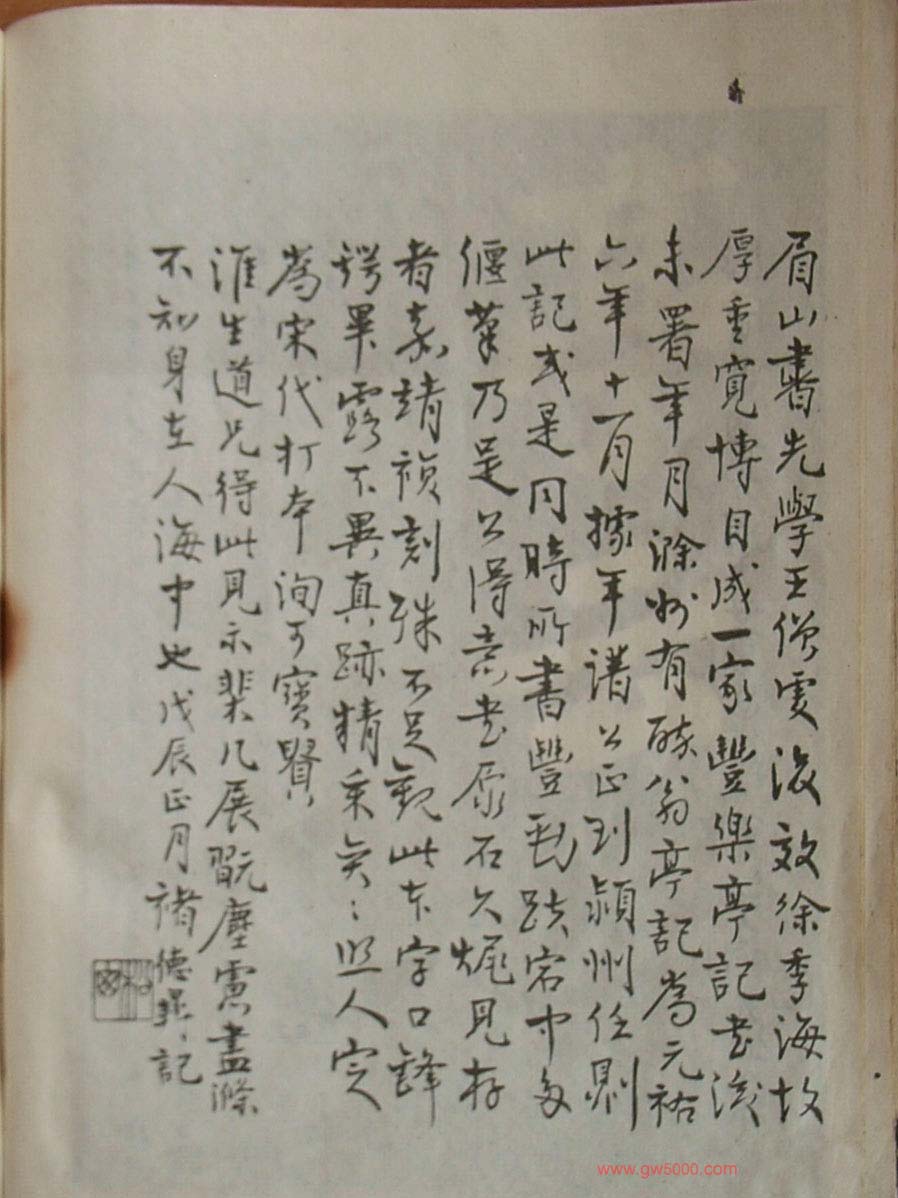 眉山書先學王僧虔後效徐季海故
厚重寬博自成一家豐樂亭記書後
未署年月滁州有醉翁亭記為元祐
六年十一月據年譜公正到潁州任則
此記或是同時所書豐勁跌宕中多
偃筆乃是公得意書原石久燬見存
者嘉靖複刻殊不足觀此本字口鋒
鍔畢露不異真跡精采奕〻照人定
為宋代打本洵可寶貴
淮生道兄得此見示棐几展翫塵慮盡滌
不知身在人海中也戊辰正月褚德彝〻記
www.gw5000.com